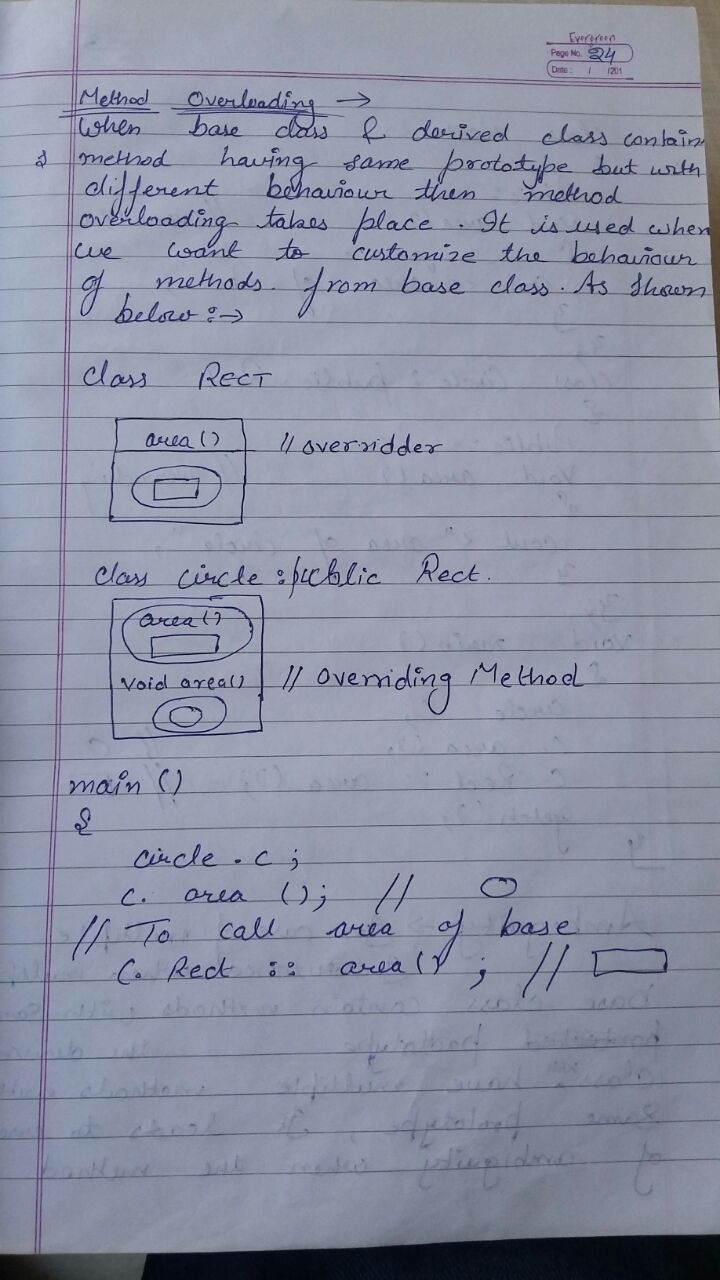 Evergreen
Page No. 24
Date : / /201
Method Overloading →
When base class & derived class contain
method having same prototype but with
different behaviour then method
overloading takes place. It is used when
we want to customize the behaviour
of methods. from base class. As shown
below :→
class RECT
area() // overridder
class circle : public Rect.
area()
void area() // Overriding Method
main ()
{
circle . c ;
c. area (); //
// To call area of base
C. Rect :: area() ; //